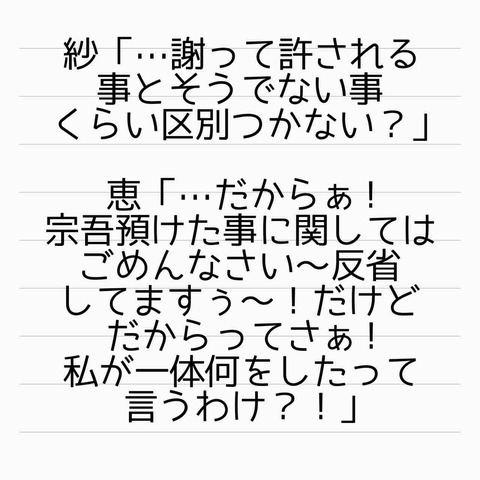 紗「…謝って許される
事とそうでない事
くらい区別つかない？」
恵「…だからぁ！
宗吾預けた事に関しては
ごめんなさい〜反省
してますぅ〜！だけど
だからってさぁ！
私が一体何をしたって
言うわけ？！」